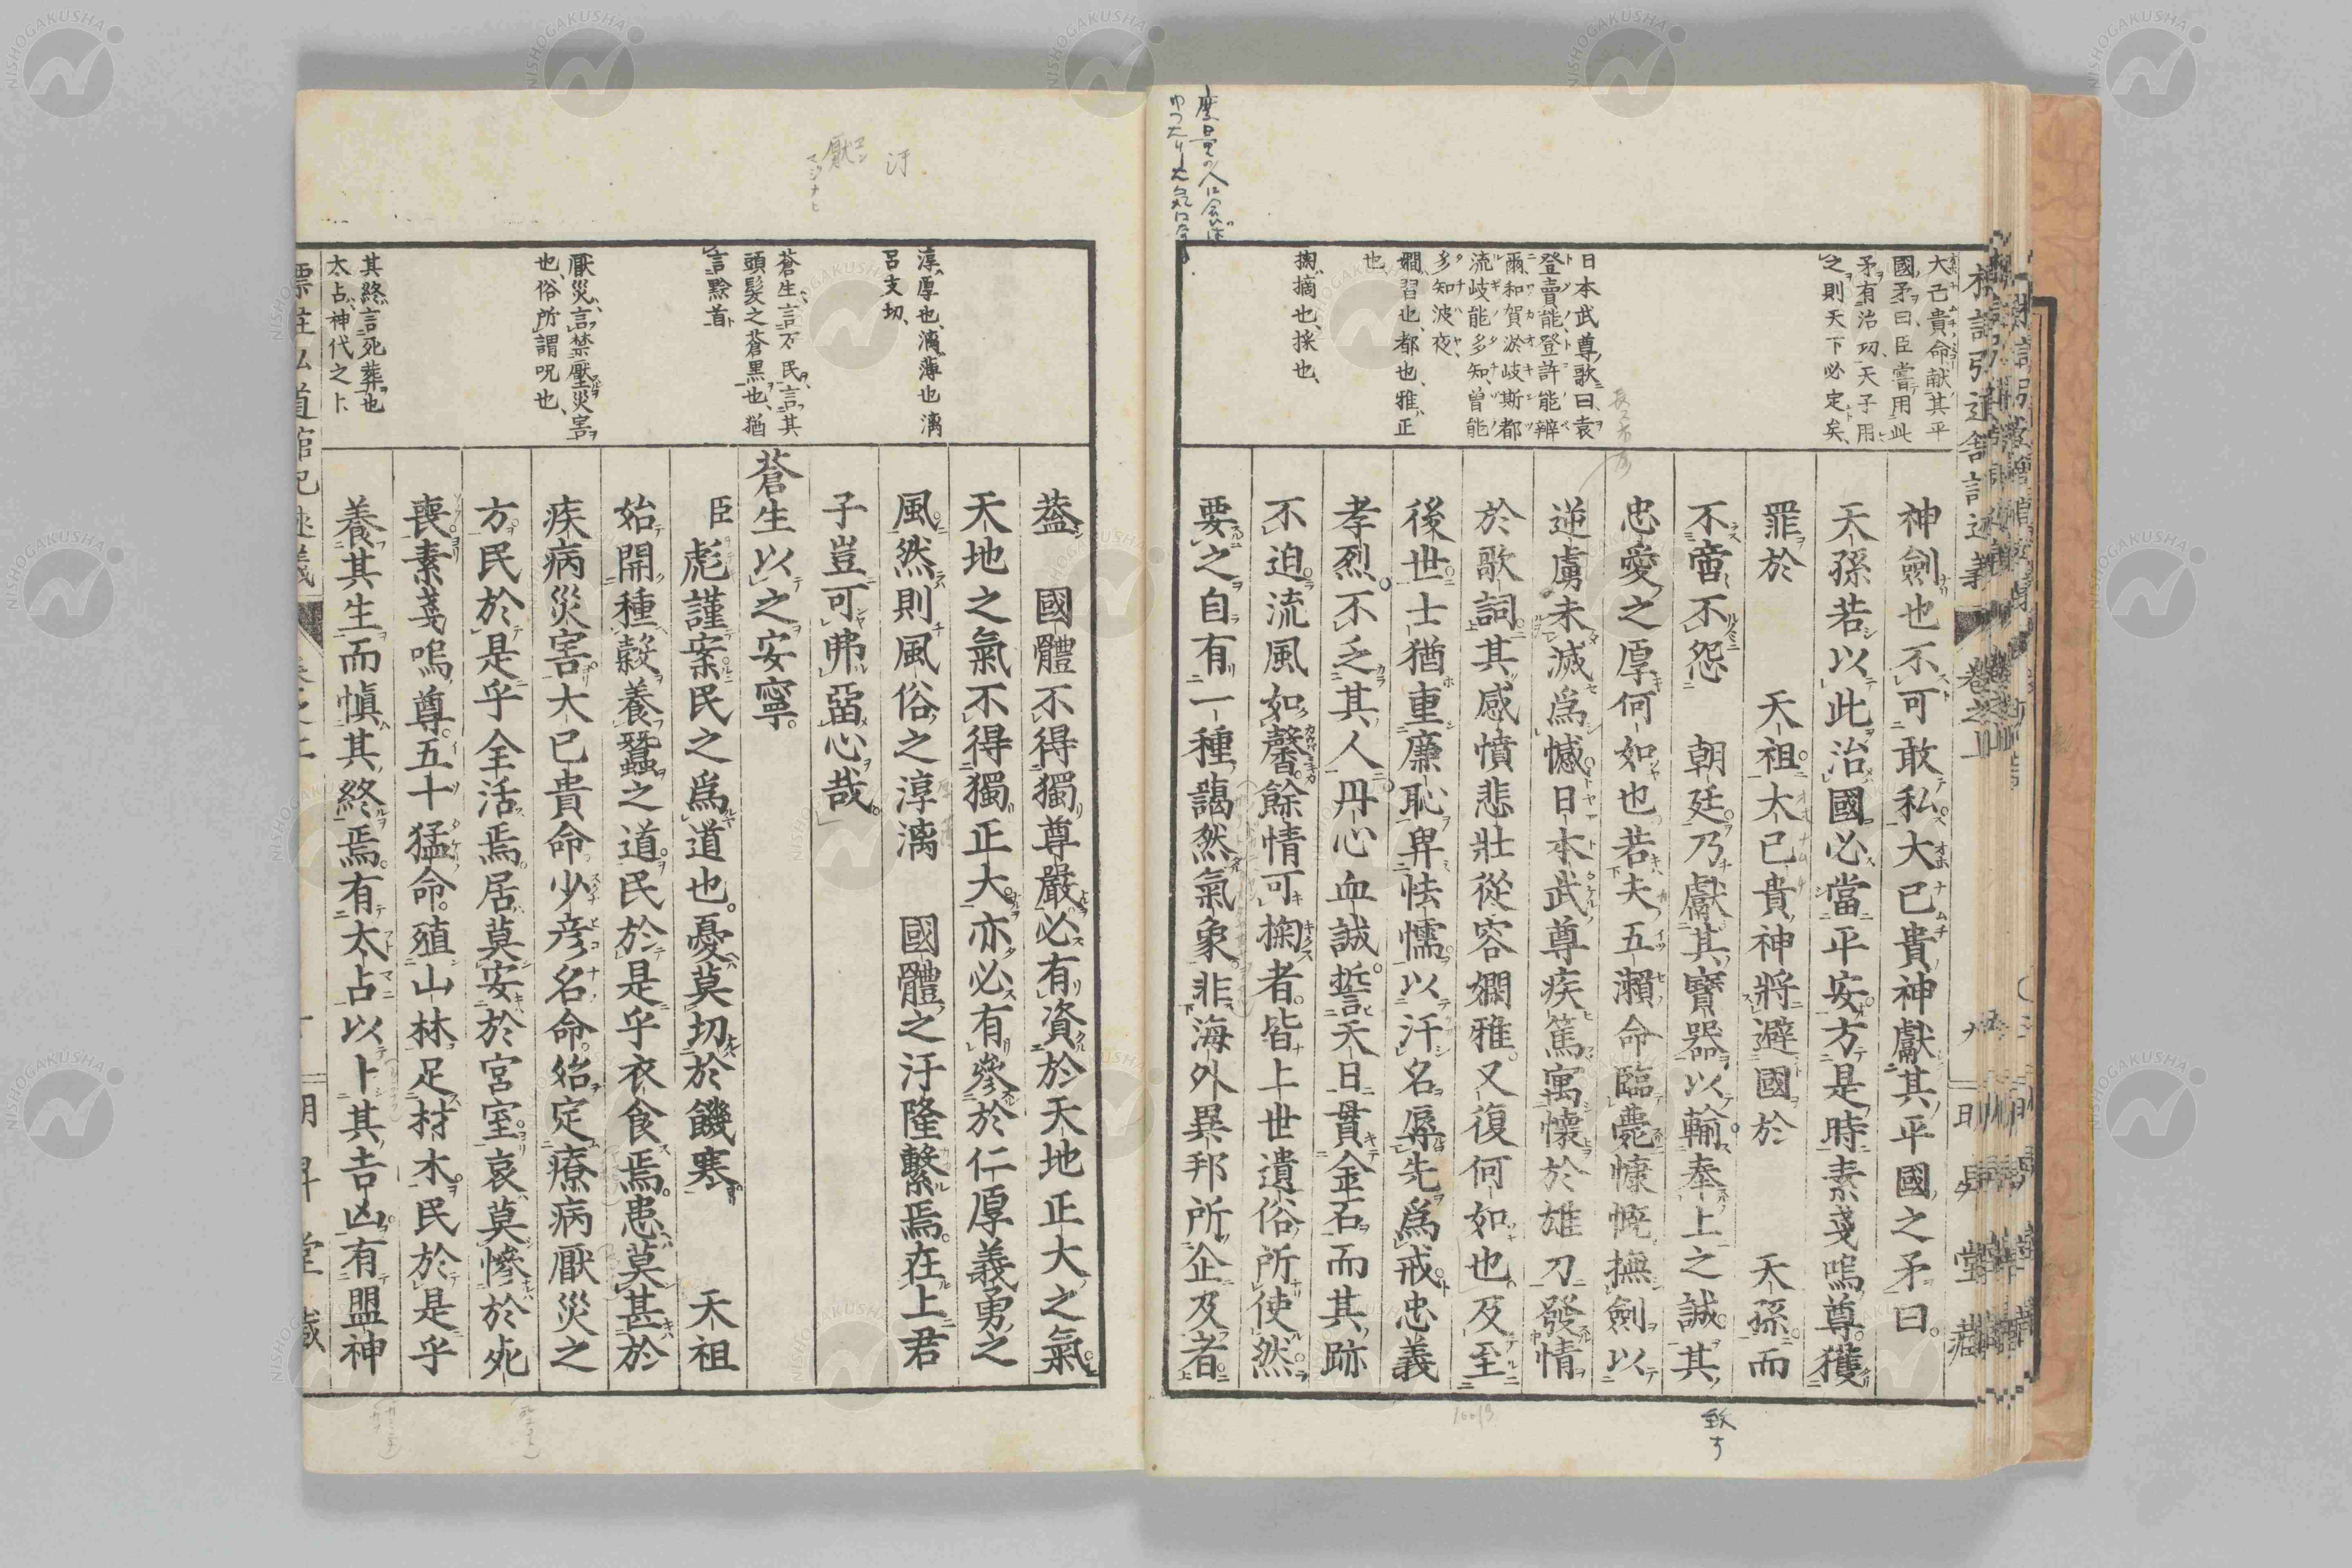 度量の人に会は
ゆつたり大気になる
大己貴命献其平
國矛曰臣嘗用此
矛有治功天子用
之則天下必定矣
日本武尊歌曰袁
登賣能登許能辨
爾和賀淤岐斯都
流岐能多知曾能
多知波夜
嫺習也都也雅正
也
掬摘也採也
神劍也不可敢私大己貴神獻其平國之矛曰
天孫若以此治國必當平安方是時素戔嗚尊獲
罪於 天祖大己貴神將避國於 天孫而
不啻不怨 朝廷乃獻其寶器以輸奉上之誠其
忠愛之厚何如也若夫五瀬命臨薨慷慨撫劍以
逆虜未滅爲憾日本武尊疾篤寓懷於雄刀發情
於歌詞其感憤悲壯從容嫺雅又復何如也及至
後世士猶重廉恥卑怯懦以汙名辱先爲戒忠義
孝烈不乏其人丹心血誠誓天日貫金石而其跡
不迫流風如馨餘情可掬者皆上世遺俗所使然
要之自有一種藹然氣象非海外異邦所企及者
致す
汙
厭
マジナヒ
淳厚也漓薄也漓
呂支切
蒼生言万民言其
頭髮之蒼黒也猶
言黔首
厭災言禁壓災害
也俗所謂呪也
其終言死葬也
太占神代之卜
蓋 國體不得獨尊嚴必有資於天地正大之氣
天地之氣不得獨正大亦必有參於仁厚義勇之
風然則風俗之淳漓 國體之汙隆繫焉在上君
子豈可弗留心哉
蒼生以之安寧
臣彪謹案民之爲道也憂莫切於饑寒 天祖
始開種穀養蠶之道民於是乎衣食焉患莫甚於
疾病災害大己貴命少彦名命始定療病厭災之
方民於是乎全活焉居莫安於宮室哀莫慘於死
喪素戔嗚尊五十猛命殖山林足材木民於是乎
養其生而愼其終焉有太占以卜其吉凶有盟神